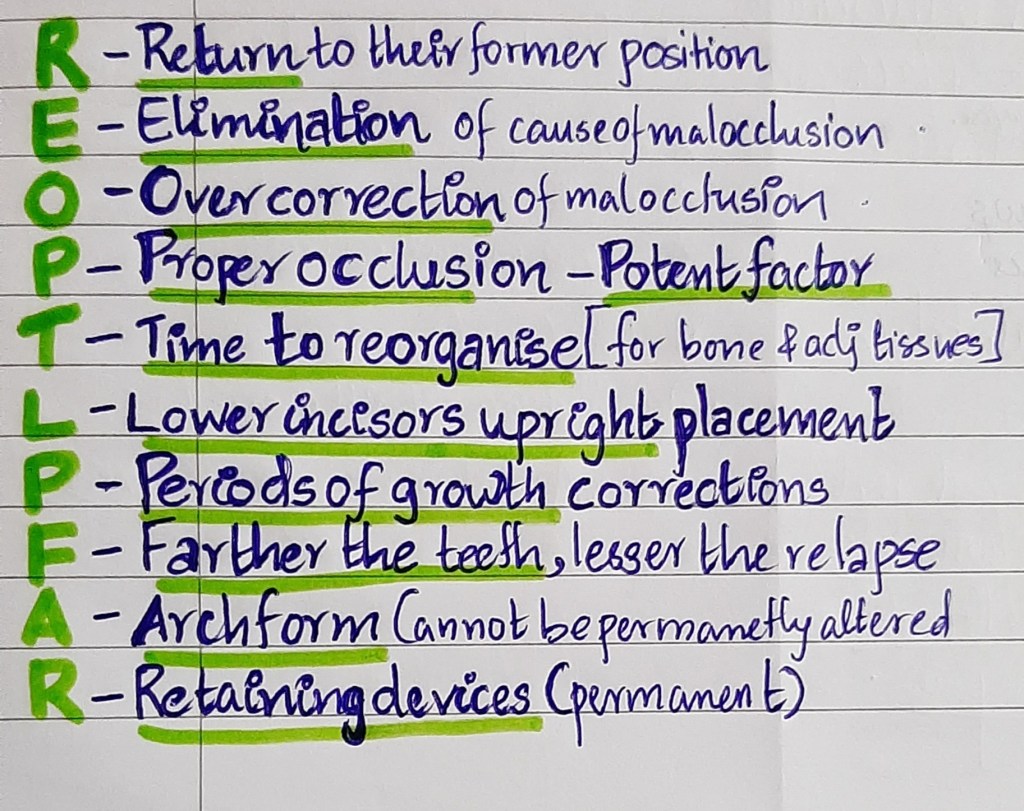 R - Return to their former position
E - Elimination of cause of malocclusion
O - Over correction of malocclusion
P - Proper occlusion - Potent factor
T - Time to reorganise [for bone & adj tissues]
L - Lower incisors upright placement
P - Periods of growth corrections
F - Farther the teeth, lesser the relapse
A - Arch form Cannot be permanetly altered
R - Retaining devices (permanent)